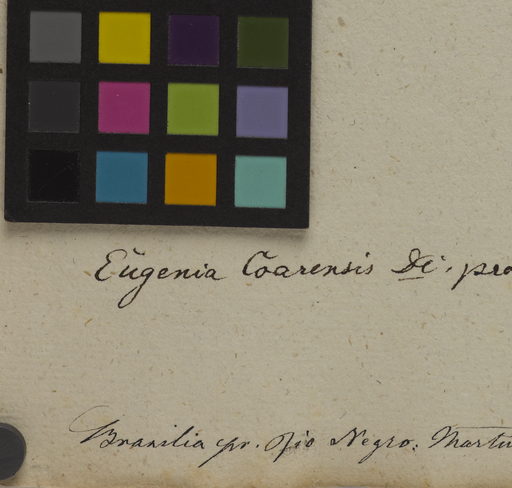 Eugenia Coarensis DC. pro
Brasilia pr. Rio Negro. Martu